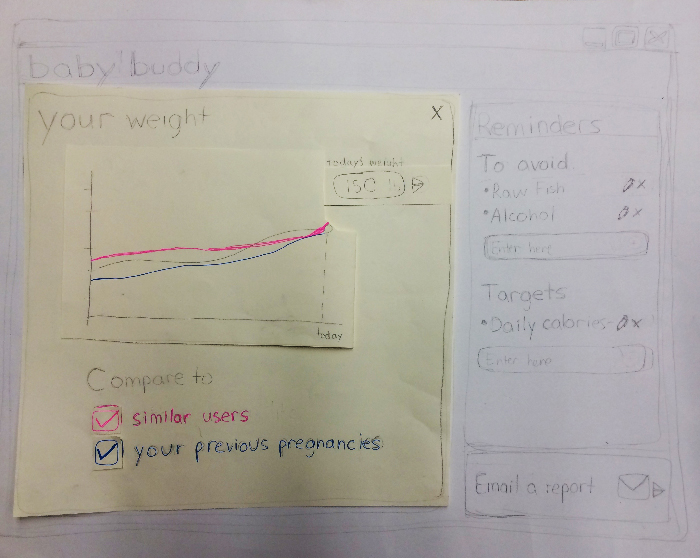 baby buddy
your weight
X
today's weight
150
today
Compare to
similar users
your previous pregnancies
Reminders
To avoid
• Raw Fish
• Alcohol
Enter here
Targets
• Daily calories
Enter here
Email a report